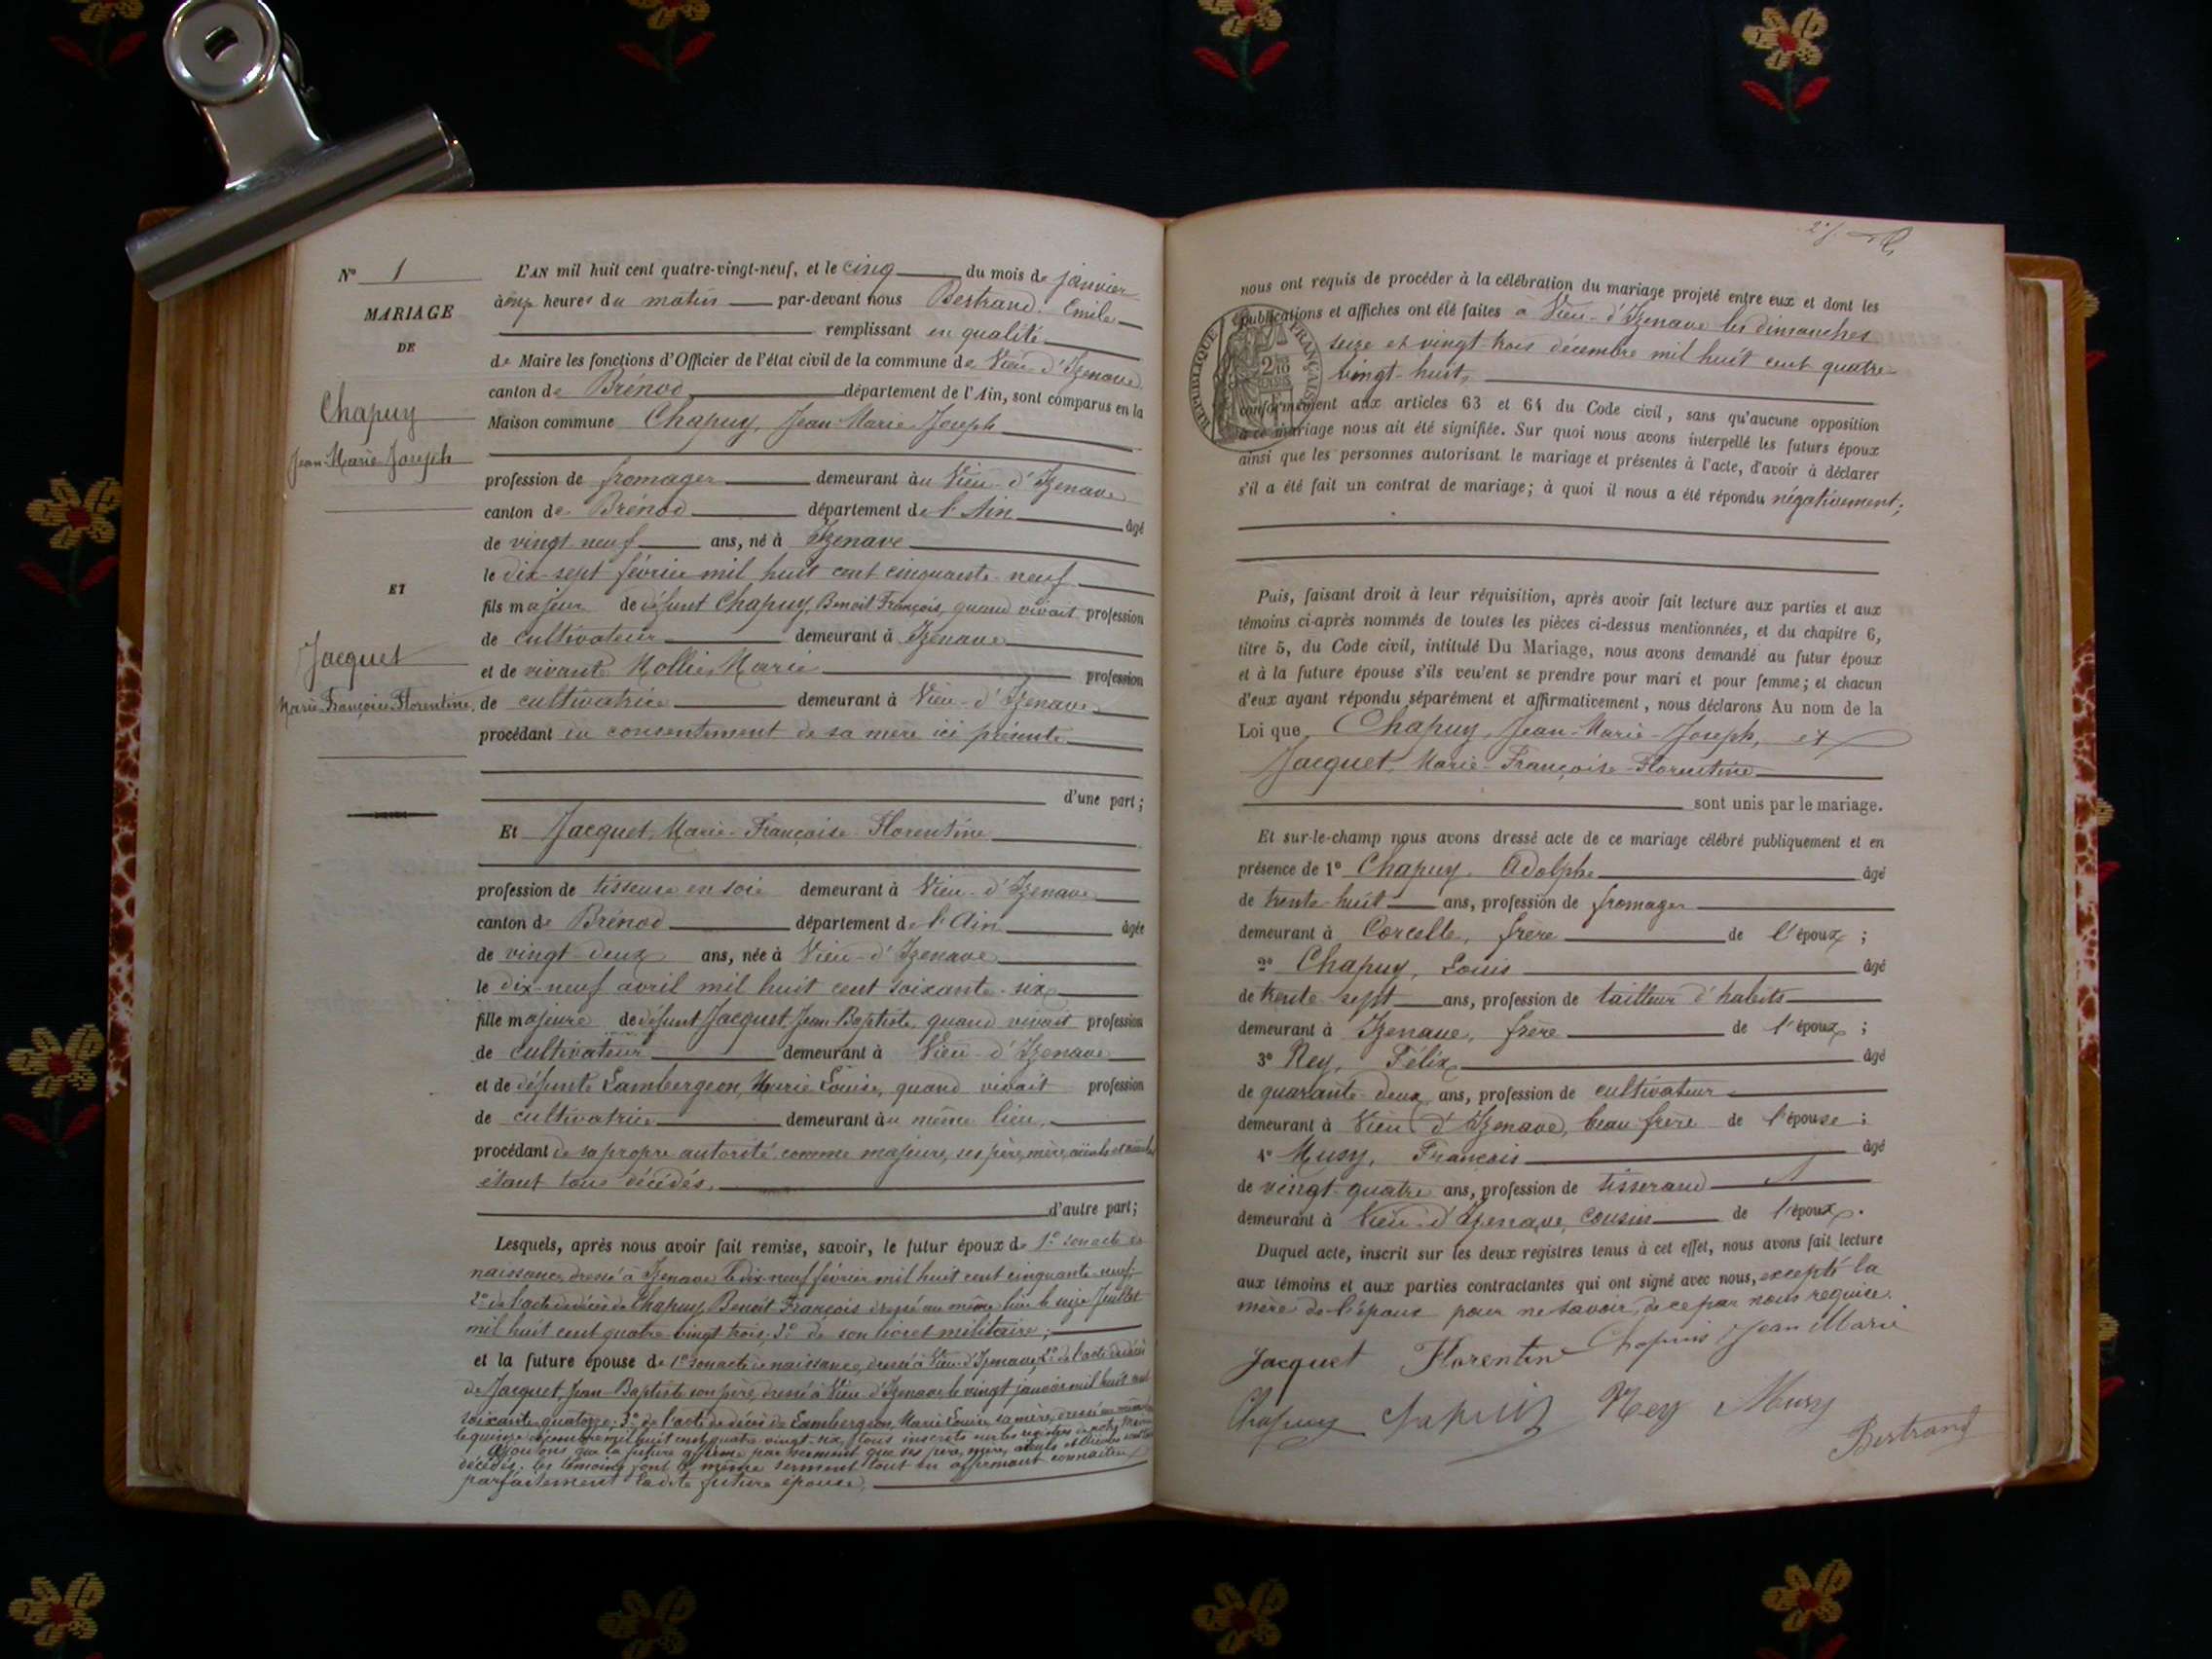 N° 1
MARIAGE
DE
Chapuy
Jean-Marie-Joseph
ET
Jacquet
Marie-Françoise-Florentine.
L'AN mil huit cent quatre-vingt-neuf, et le cinq du mois de janvier
à onze heures du matin par-devant nous Bertrand, Emile
remplissant en qualité
de Maire les fonctions d'Officier de l'état civil de la commune de Vieu-d'Izenave
canton de Brénod département de l'Ain, sont comparus en la
Maison commune Chapuy, Jean-Marie-Joseph
profession de fromager demeurant à Vieu-d'Izenave
canton de Brénod département de l'Ain âgé
de vingt-neuf ans, né à Izenave
le dix-sept février mil huit cent cinquante-neuf
fils majeur de défunt Chapuy, Benoit François, quand vivait profession
de cultivateur demeurant à Izenave
et de vivante Mollie, Marie profession
de cultivatrice demeurant à Vieu-d'Izenave
procédant du consentement de sa mère ici présente
d'une part;
Et Jacquet, Marie-Françoise-Florentine
profession de tisseuse en soie demeurant à Vieu-d'Izenave
canton de Brénod département de l'Ain âgée
de vingt-deux ans, née à Vieu-d'Izenave
le dix-neuf avril mil huit cent soixante-six
fille majeure de défunt Jacquet, Jean-Baptiste, quand vivait profession
de cultivateur demeurant à Vieu-d'Izenave
et de défunte Lambergeon, Marie Louise, quand vivait profession
de cultivatrice demeurant au même lieu,
procédant de sa propre autorité comme majeure, ses père, mère, aïeuls et aïeules
étant tous décédés,
d'autre part;
Lesquels, après nous avoir fait remise, savoir, le futur époux de 1° son acte de
naissance dressé à Izenave le dix-neuf février mil huit cent cinquante-neuf;
2° de l'acte de décès de Chapuy, Benoit-François dressé au même lieu le seize Juillet
mil huit cent quatre-vingt-trois; 3° de son livret militaire;
et la future épouse de 1° son acte de naissance, dressé à Vieu-d'Izenave; 2° de l'acte de décès
de Jacquet, Jean-Baptiste son père, dressé à Vieu-d'Izenave le vingt janvier mil huit cent
soixante-quatorze; 3° de l'acte de décès de Lambergeon, Marie Louise sa mère, dressé au même lieu
le quinze décembre mil huit cent quatre-vingt-six, tous inscrits sur les registres de notre Mairie
Ajoutons que la future affirme par serment que ses père, mère, aïeuls et aïeules sont
décédés. Les témoins font le même serment tout en affirmant connaître
parfaitement ladite future épouse.
nous ont requis de procéder à la célébration du mariage projeté entre eux et dont les
publications et affiches ont été faites à Vieu-d'Izenave les dimanches
seize et vingt-trois décembre mil huit cent quatre-
vingt-huit,
RÉPUBLIQUE FRANÇAISE
conformément aux articles 63 et 64 du Code civil, sans qu'aucune opposition
à ce mariage nous ait été signifiée. Sur quoi nous avons interpellé les futurs époux
ainsi que les personnes autorisant le mariage et présentes à l'acte, d'avoir à déclarer
s'il a été fait un contrat de mariage; à quoi il nous a été répondu négativement;
Puis, faisant droit à leur réquisition, après avoir fait lecture aux parties et aux
témoins ci-après nommés de toutes les pièces ci-dessus mentionnées, et du chapitre 6,
titre 5, du Code civil, intitulé Du Mariage, nous avons demandé au futur époux
et à la future épouse s'ils veulent se prendre pour mari et pour femme; et chacun
d'eux ayant répondu séparément et affirmativement, nous déclarons Au nom de la
Loi que Chapuy, Jean-Marie-Joseph, et
Jacquet, Marie-Françoise-Florentine
sont unis par le mariage.
Et sur-le-champ nous avons dressé acte de ce mariage célébré publiquement et en
présence de 1° Chapuy, Adolphe âgé
de trente-huit ans, profession de fromager
demeurant à Corcelle, frère de l'époux;
2° Chapuy, Louis âgé
de trente-sept ans, profession de tailleur d'habits
demeurant à Izenave, frère de l'époux;
3° Rey, Félix âgé
de quarante-deux ans, profession de cultivateur
demeurant à Vieu-d'Izenave, beau-frère de l'épouse;
4° Musy, François âgé
de vingt-quatre ans, profession de tisserand
demeurant à Vieu-d'Izenave, cousin de l'époux.
Duquel acte, inscrit sur les deux registres tenus à cet effet, nous avons fait lecture
aux témoins et aux parties contractantes qui ont signé avec nous, excepté la
mère de l'époux pour ne savoir, de ce par nous requise.
Jacquet Florentine Chapuis Jean Marie
Chapuy Chapuis Rey Musy
Bertrand